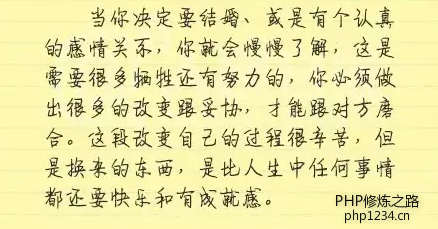 当你决定要结婚、或是有个认真
的感情关系，你就会慢慢了解，这是
需要很多牺牲还有努力的，你必须做
出很多的改变跟妥协，才能跟对方磨
合。这段改变自己的过程很辛苦，但
是换来的东西，是比人生中任何事情
都还要快乐和有成就感。
PHP修炼之路
php1234.cn